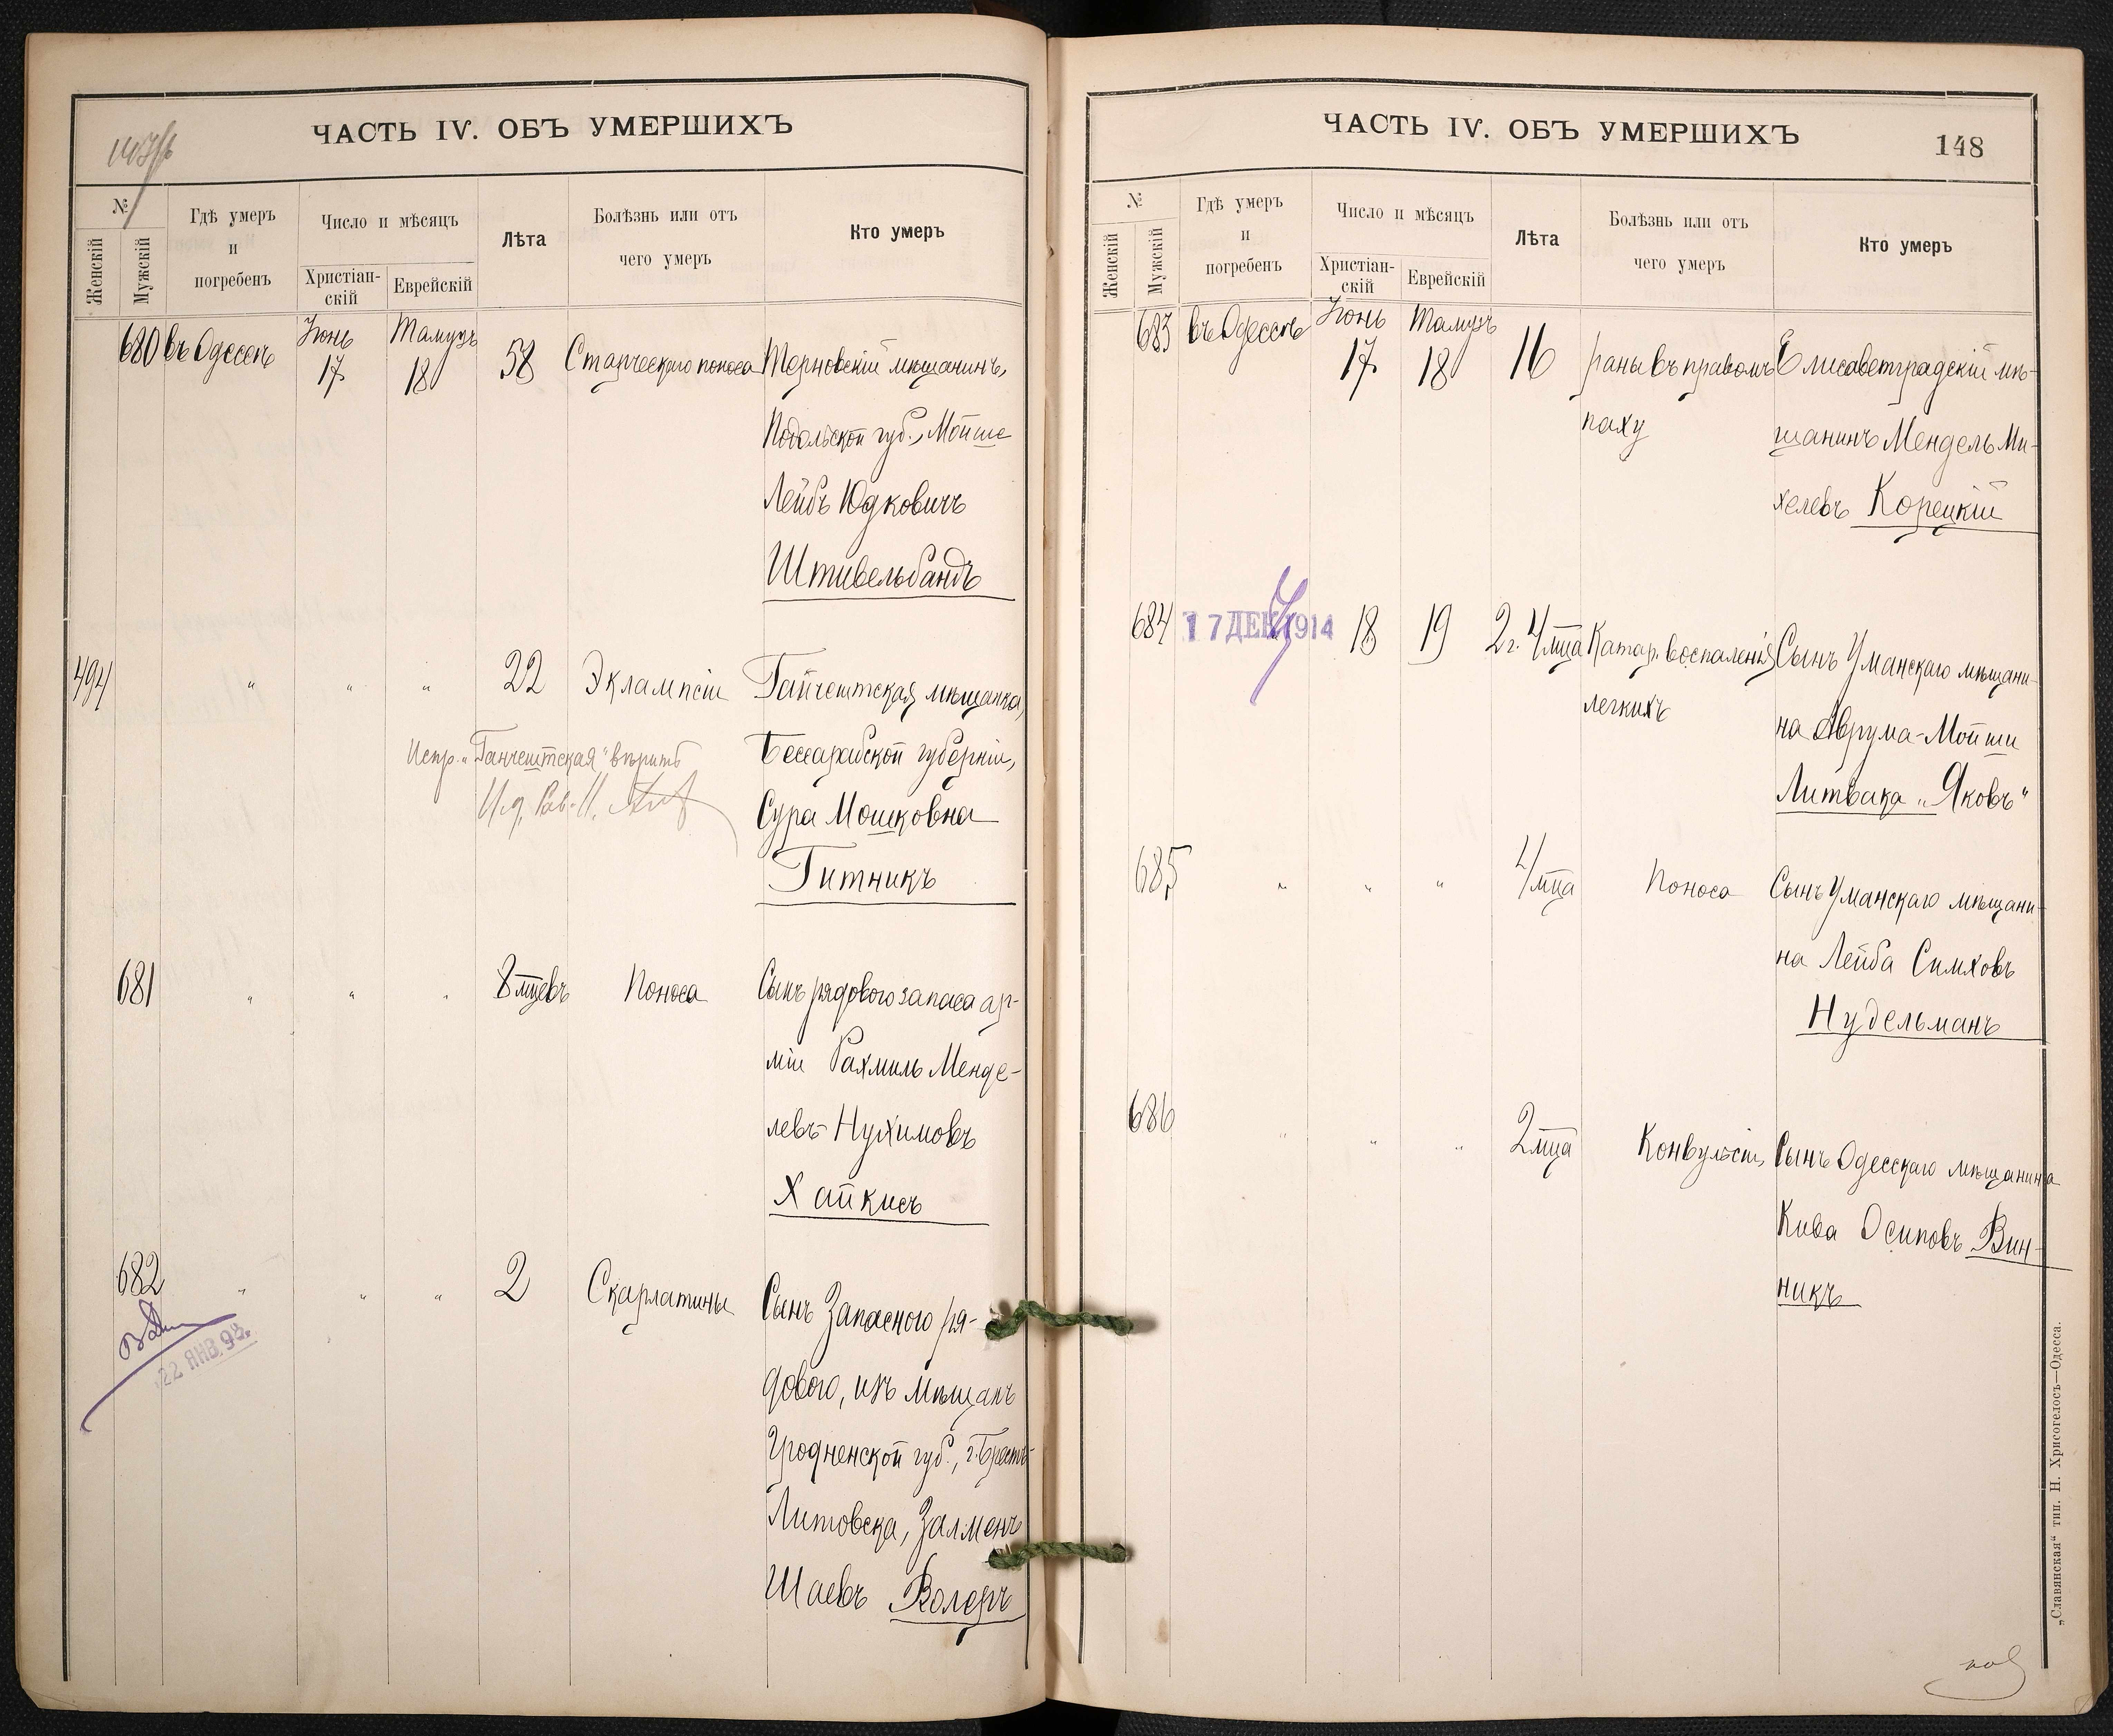 147/б
ЧАСТЬ IV. ОБЪ УМЕРШИХЪ
№
Женскій
Мужскій
Гдѣ умеръ
и
погребенъ
Число и мѣсяцъ
Христіан-
скій
Еврейскій
Лѣта
Болѣзнь или отъ
чего умеръ
Кто умеръ
680 въ Одессѣ Іюнь 17 Тамузъ 18 58 Старческаго поноса Терновскій мѣщанинъ,
Подольской губ., Мойше
Лейбъ Юдковичъ
Штивельбандъ
494 " " " 22 Эклампсіи Гайчештская мѣщанка,
Испр. „Ганчештская" вѣритъ
Бессарабской губерніи,
Сура Мошковна
Гитникъ
681 " " " 8 мцевъ Поноса Сынъ рядового запаса ар-
міи Рахмиль Менде-
левъ-Нухимовъ
Хайкисъ
682 " " " 2 Скарлатины Сынъ Запасного ря-
дового, изъ мѣщанъ
Гродненской губ., г. Брестъ-
Литовска, Залменъ
Шаевъ Волеръ
22 ЯНВ. 93.
ЧАСТЬ IV. ОБЪ УМЕРШИХЪ
148
№
Женскій
Мужскій
Гдѣ умеръ
и
погребенъ
Число и мѣсяцъ
Христіан-
скій
Еврейскій
Лѣта
Болѣзнь или отъ
чего умеръ
Кто умеръ
683 въ Одессѣ Іюнь 17 Тамузъ 18 16 раны въ правомъ Елисаветградскій мѣ-
паху щанинъ Мендель Ми-
хелевъ Корецкій
684 17 ДЕК 1914 18 19 2 г. 4 мца Катар. воспаленія Сынъ Уманскаго мѣщани-
легкихъ на Аврума-Мойши
Литвака „Яковъ"
685 " " " 4 мца Поноса Сынъ Уманскаго мѣщани-
на Лейба Симховъ
Нудельманъ
686 " " " 2 мца Конвульсіи Сынъ Одесскаго мѣщанина
Кива Осиповъ Вин-
никъ
„Славянская" тип. Н. Хрисогелосъ—Одесса.